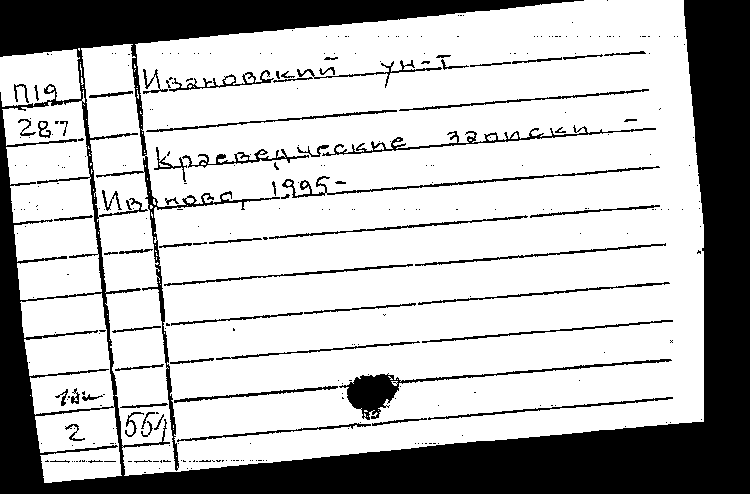 П19
287
Ивановский ун-т
Краеведческие записки. –
Иваново, 1995–
2
551